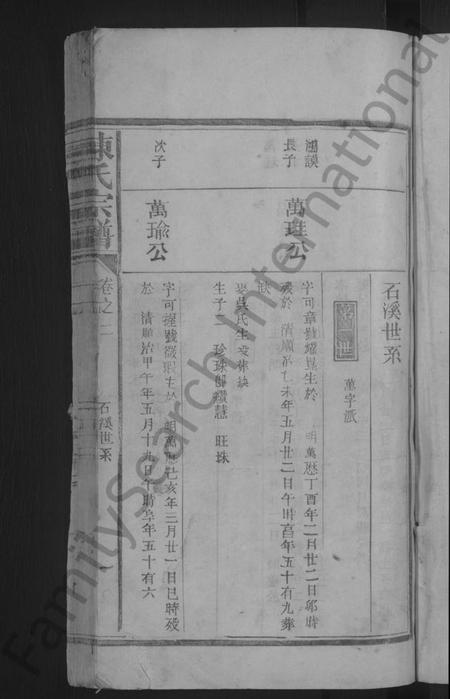 石溪世系
世
萬字派
鴻謨
長子
萬珪公
字可章號耀巽生於 明萬曆丁酉年二月廿二日卯時
歿於 清順治乙未年五月廿二日午時享年五十有九葬
缺
娶吳氏生歿葬缺
生子二 珍珠 旺珠
次子
萬瑜公
字可握號 瑕生於 明萬曆己亥年三月廿一日巳時歿
於 清順治甲午年五月十九日午時享年五十有六
陳氏宗譜
卷之二
石溪世系
一
FamilySearch International